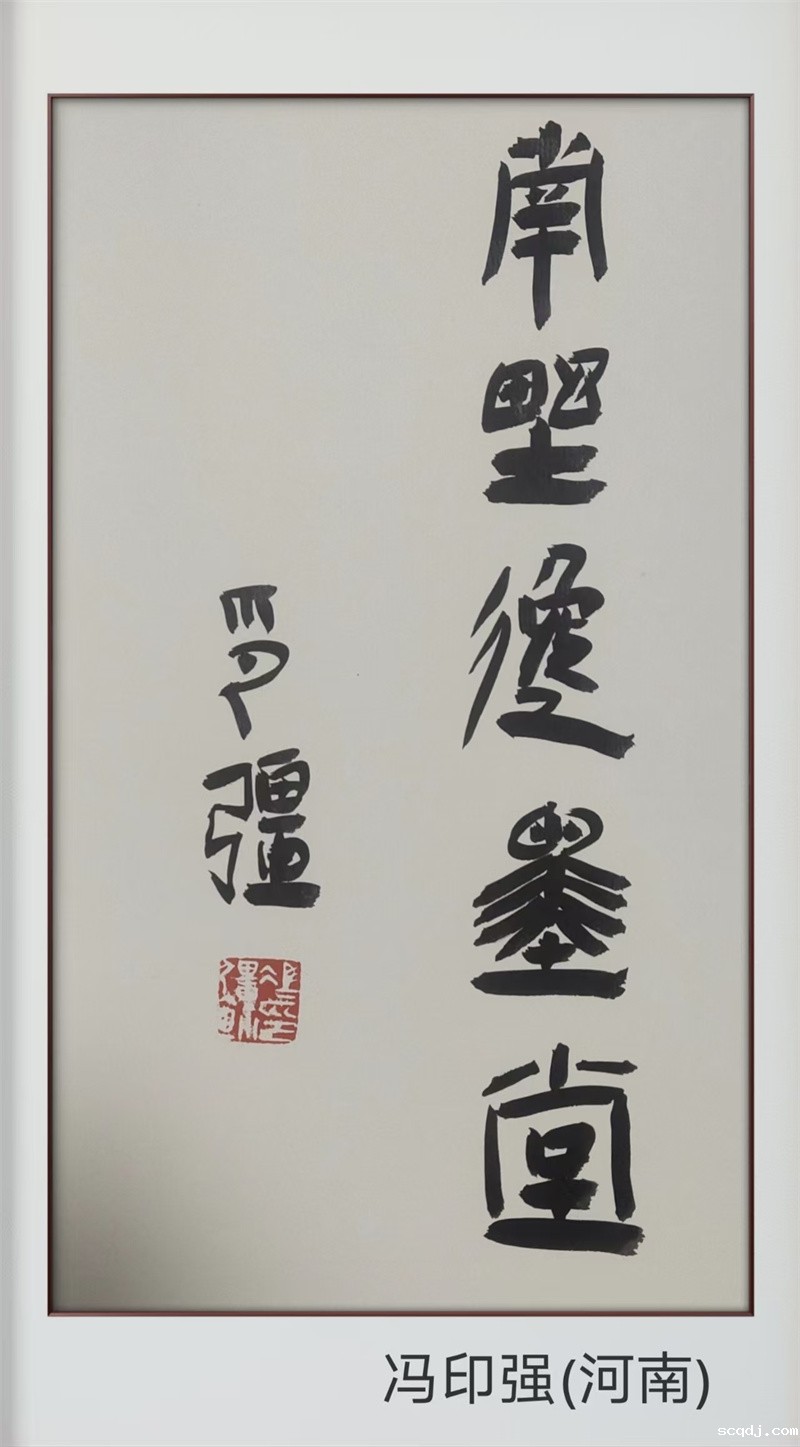 南野逸墨堂
印彊
冯印强(河南)
scqdj.com